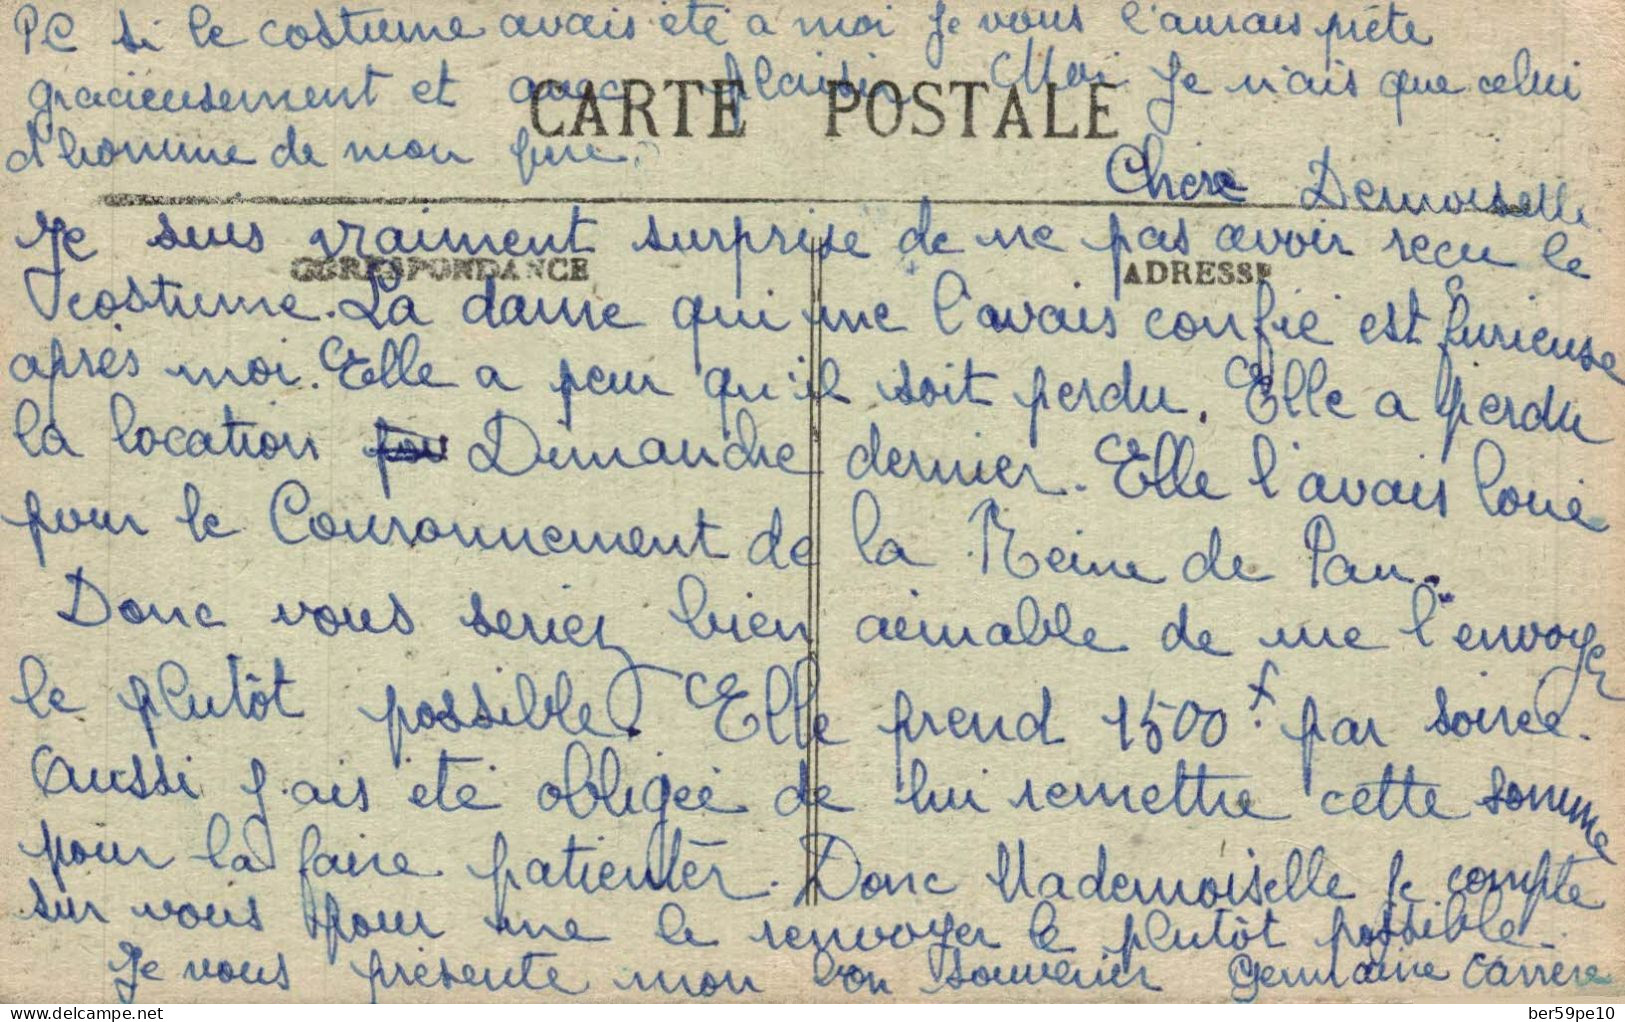 PC si le costume avais été a moi Je vous l'aurais prété
gracieusement et avec plaisir Moi Je n'ais que celui
d'homme de mon
CARTE POSTALE
Chere Demoiselle
Je suis vraiment surprise de ne pas avoir recu le
CORRESPONDANCE
ADRESSE
costume. La dame qui me l'avais confié est furieuse
après moi. Elle a peur qu'il soit perdu. Elle a perdu
la location Dimanche dernier. Elle l'avais loué
pour le Couronnement de la Reine de Pau.
Donc vous seriez bien aimable de me l'envoyer
le plutôt possible. Elle prend 1500 f. par soirée.
Aussi j'ais été obligée de lui remettre cette somme
pour la faire patienter. Donc Mademoiselle je compte
sur vous pour me le renvoyer le plutôt possible.
Je vous présente mon bon souvenir Germaine Carrère
delcampe.net
ber59pe10